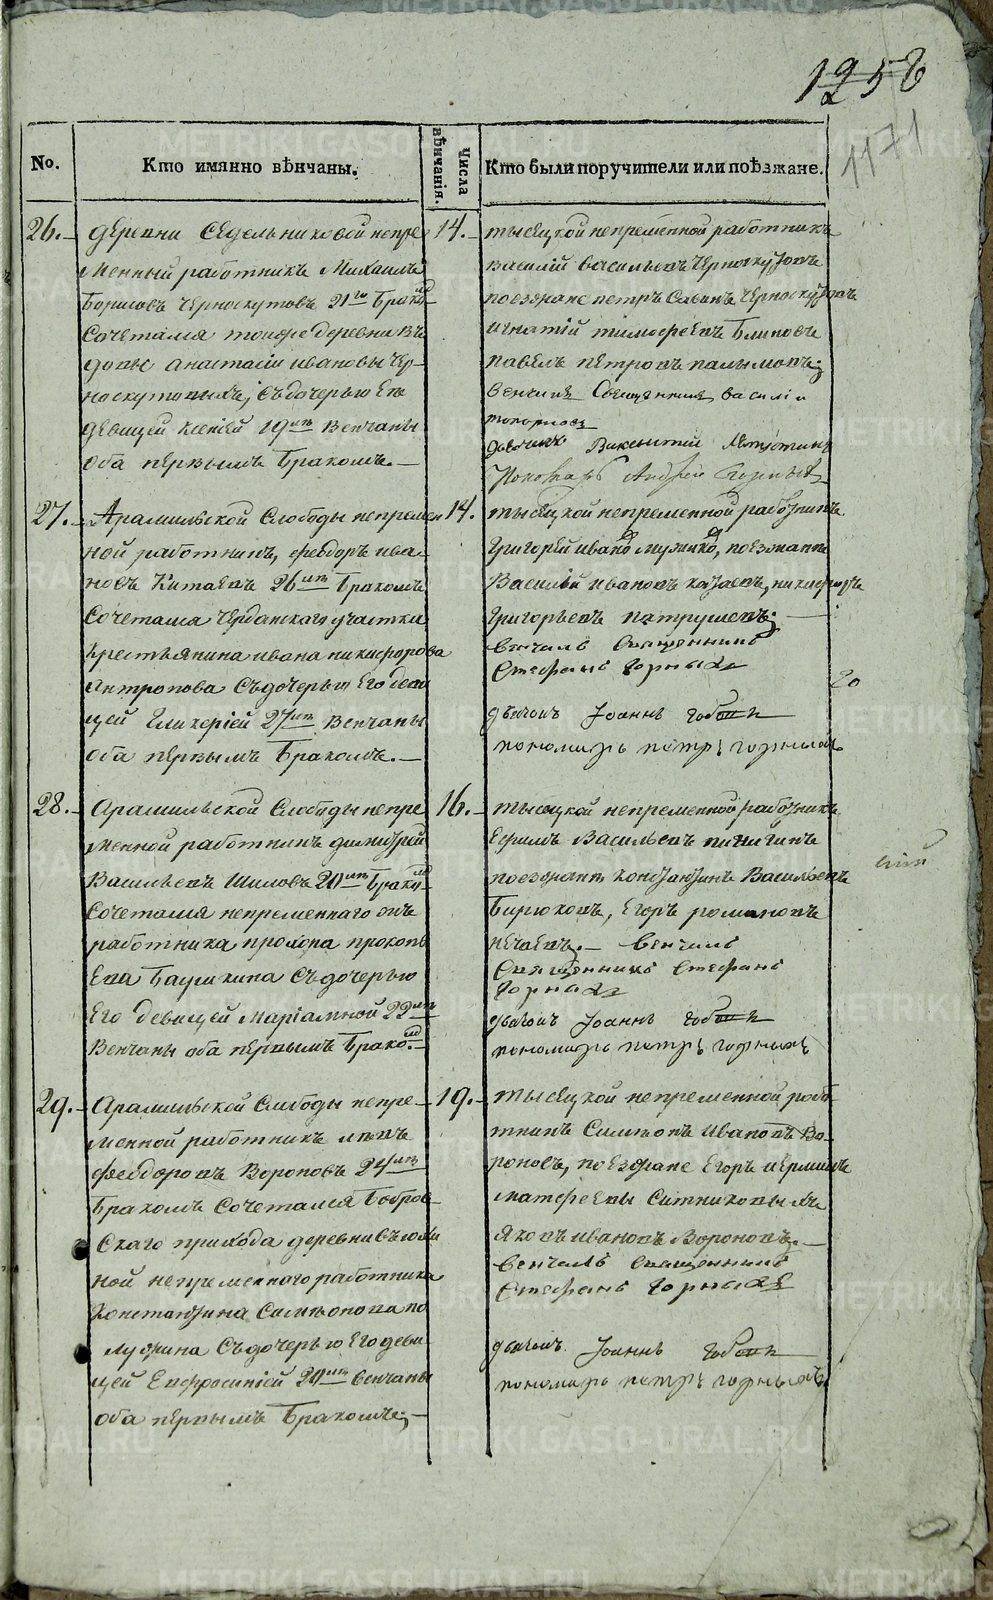 1171
No.
Кто имянно вѣнчаны.
Числа вѣнчанія.
Кто были поручители или поѣзжане.
26.
деревни Седельниковой непре
менный работникъ Михаилъ
Борисовъ Черноскутовъ 21го Брако
сочетался тоеже деревни въ
довы Анастасіи Ивановы Чер
носкутовыхъ, съ дочерью Ея
девицей Ксеніей 19лѣт Венчаны
оба первымъ Бракомъ.
14.
тысяцкой непременной работникъ
Василій Васильевъ Черноскутовъ
поезжане Петръ Савинъ Черноскутовъ
Игнатій Тимофѣевъ Блиновъ
Павелъ Петровъ
Венчалъ Священникъ Василіи
Топорковъ
дьячокъ Викентий
Пономарь Андрей
27.
Арамильской Слободы непремен
ной работникъ, Феодоръ Ива
новъ Китаевъ 26лѣт Бракомъ
Сочетался участка
Крестьянина Ивана Никифорова
Антропова Съ дочерью Его деви
цей Гликеріей 27лѣт Венчаны
оба первымъ Бракомъ.
14.
тысяцкой непременной работникъ
Григорей Ивановъ поезжанъ
Василій Ивановъ Никифоръ
Григорьевъ Патрушевъ
венчалъ Священникъ
Стефанъ Горныхъ
дьячокъ Іоаннъ
пономарь Петръ Горныхъ
20
28.
Арамильской Слободы непре
менной работникъ Димитрей
Васильевъ Шиловъ 20лѣт Брако
Сочетался непременнаго жъ
работника Прохора Прокопь
ева Баушкина Съ дочерью
Его девицей Маріамной 22лѣт
Венчаны оба первымъ Брако
16.
тысяцкой непременной работникъ
Ефимъ Васильевъ Пинигинъ
поезжанѣ Константинъ Васильевъ
Бирюковъ, Егоръ Романовъ
Нечаевъ. Венчалъ
Священникъ Стефанъ
Горныхъ
дьячокъ Іоаннъ
пономарь Петръ Горныхъ
29.
Арамильской Слободы непре
менной работникъ Левъ
Феодоровъ Вороновъ 24лѣт
Бракомъ Сочетался Бобров
Скаго прихода деревни
ной непременнаго работника
Константина Симеонова По
лужина Съ дочерью Его деви
цей Евфросиніей 20лѣт Венчаны
оба первымъ Бракомъ
19.
тысяцкой непременной рабо
тникъ Симеонъ Ивановъ Во
роновъ, поезжане Егоръ и Ермилъ
Матфеевы Ситниковы
Яковъ Ивановъ Вороновъ
Венчалъ Священникъ
Стефанъ Горныхъ
дьячокъ Іоаннъ
пономарь Петръ Горныхъ
METRIKI.GASO-URAL.RU